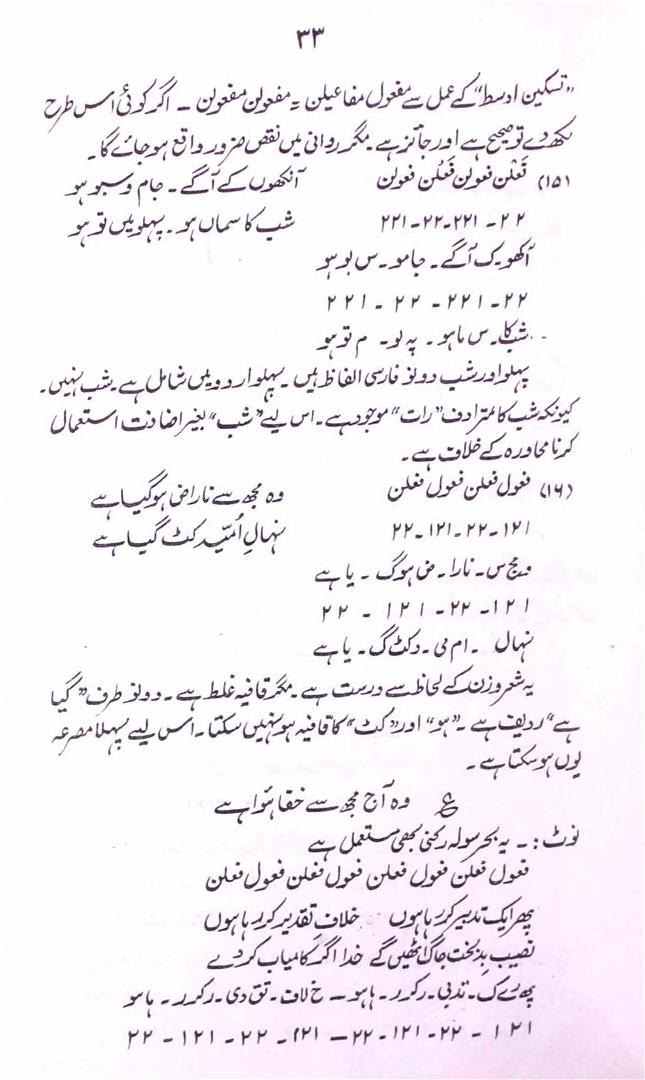 ۳۳
”تسکین اوسط“ کے عمل سے مفعول مفاعیلن = مفعولن مفعولن ۔ اگر کوئی اس طرح
لکھ دے تو صحیح ہے اور جائز ہے۔ مگر روانی میں نقص ضرور واقع ہو جائے گا۔
(۱۵) فَعْلن فعولن فَعْلن فعولن آنکھوں کے آگے ۔ جام و سبو ہو
۲ ۲ - ۲۲۱-۲۲-۲۲۱ شب کا سماں ہو ۔ پہلو میں تو ہو
آکھو۔ک آگے ۔ جامو۔س بو ہو
۲۲-۲۲۱ - ۲۲ - ۲۲۱
شب کا۔ س ما ہو ۔ پہ لو ۔ م تو ہو
پہلو اور شب دونو فارسی الفاظ ہیں۔ پہلو اردو میں شامل ہے۔ شب نہیں۔
کیونکہ شب کا مترادف ”رات“ موجود ہے۔ اس لیے ”شب“ بغیر اضافت استعمال
کرنا محاورہ کے خلاف ہے۔
(۱۶) فعول فعلن فعول فعلن وہ مجھ سے ناراض ہو گیا ہے
۱۲۱-۲۲-۱۲۱-۲۲ نہالِ اُمّید کٹ گیا ہے
و مج س ۔ نارا ۔ ض ہو گ ۔ یا ہے
۱۲۱ - ۲۲ - ۱۲۱ - ۲۲
نہال ۔ ام می ۔ دکٹ گ ۔ یا ہے
یہ شعر وزن کے لحاظ سے درست ہے۔ مگر قافیہ غلط ہے۔ دونو طرف ”گیا
ہے“ ردیف ہے۔ ”ہو“ اور ”کٹ“ کا قافیہ ہو نہیں سکتا۔ اس لیے پہلا مصرعہ
یوں ہو سکتا ہے۔
ع وہ آج مجھ سے خفا ہوا ہے
نوٹ :۔ یہ بحر سولہ رکنی بھی مستعمل ہے
فعول فعلن فعول فعلن فعول فعلن فعول فعلن
پھر ایک تدبیر کر رہا ہوں خلافِ تقدیر کر رہا ہوں
نصیب بدبخت جاگ اٹھیں گے خدا اگر کامیاب کر دے
پھ رے ک ۔ تدبی ۔ رکرر ۔ ہاہو — خ لاف ۔ تق دی ۔ رکرر ۔ ہاہو
۱۲۱ - ۲۲ - ۱۲۱ - ۲۲ — ۱۲۱ - ۲۲ - ۱۲۱ - ۲۲